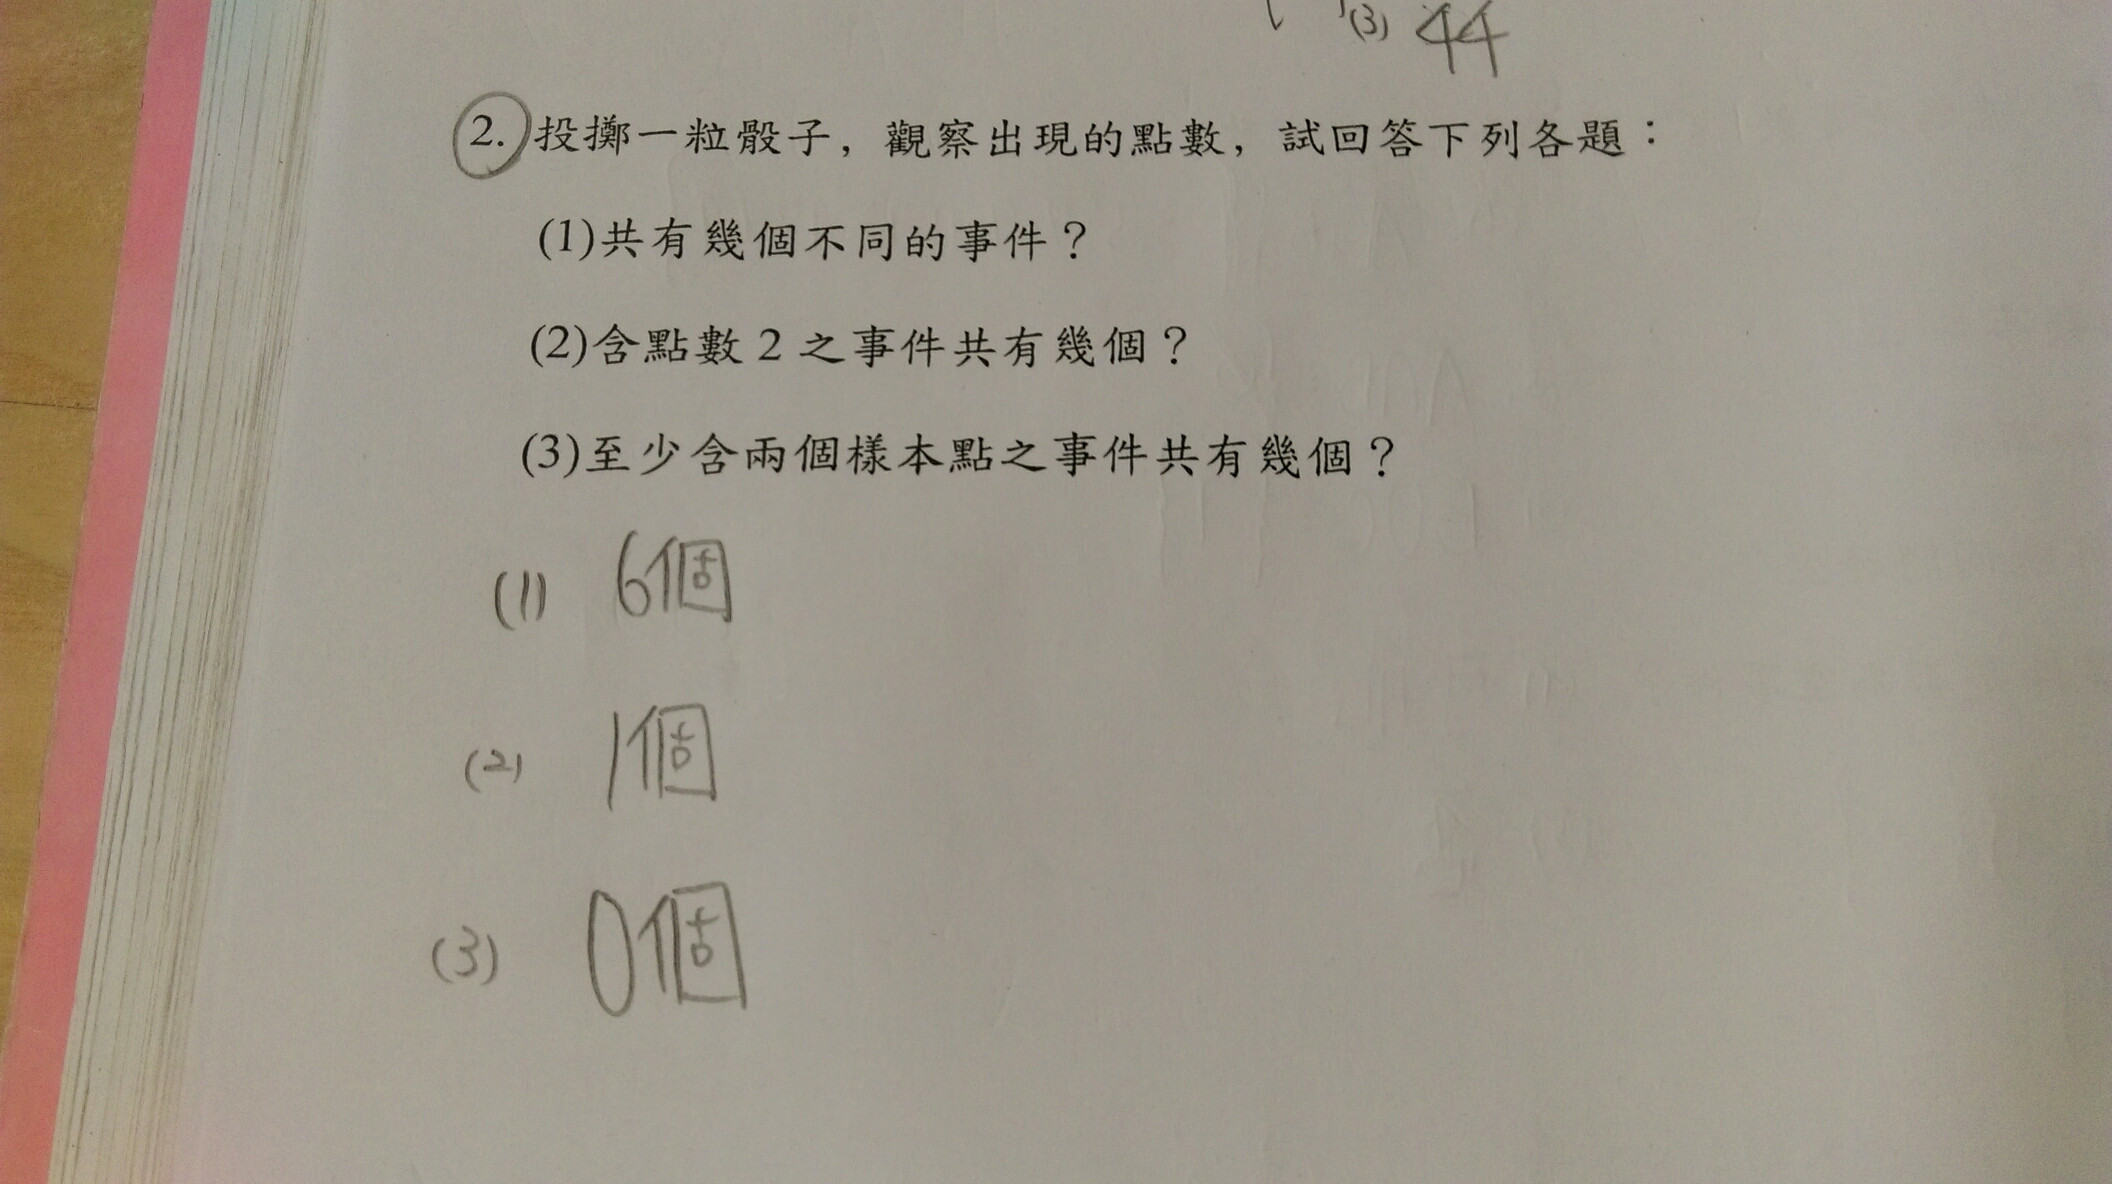 (3) 44
2. 投擲一粒骰子，觀察出現的點數，試回答下列各題：
(1)共有幾個不同的事件？
(2)含點數 2 之事件共有幾個？
(3)至少含兩個樣本點之事件共有幾個？
(1) 6個
(2) 1個
(3) 0個